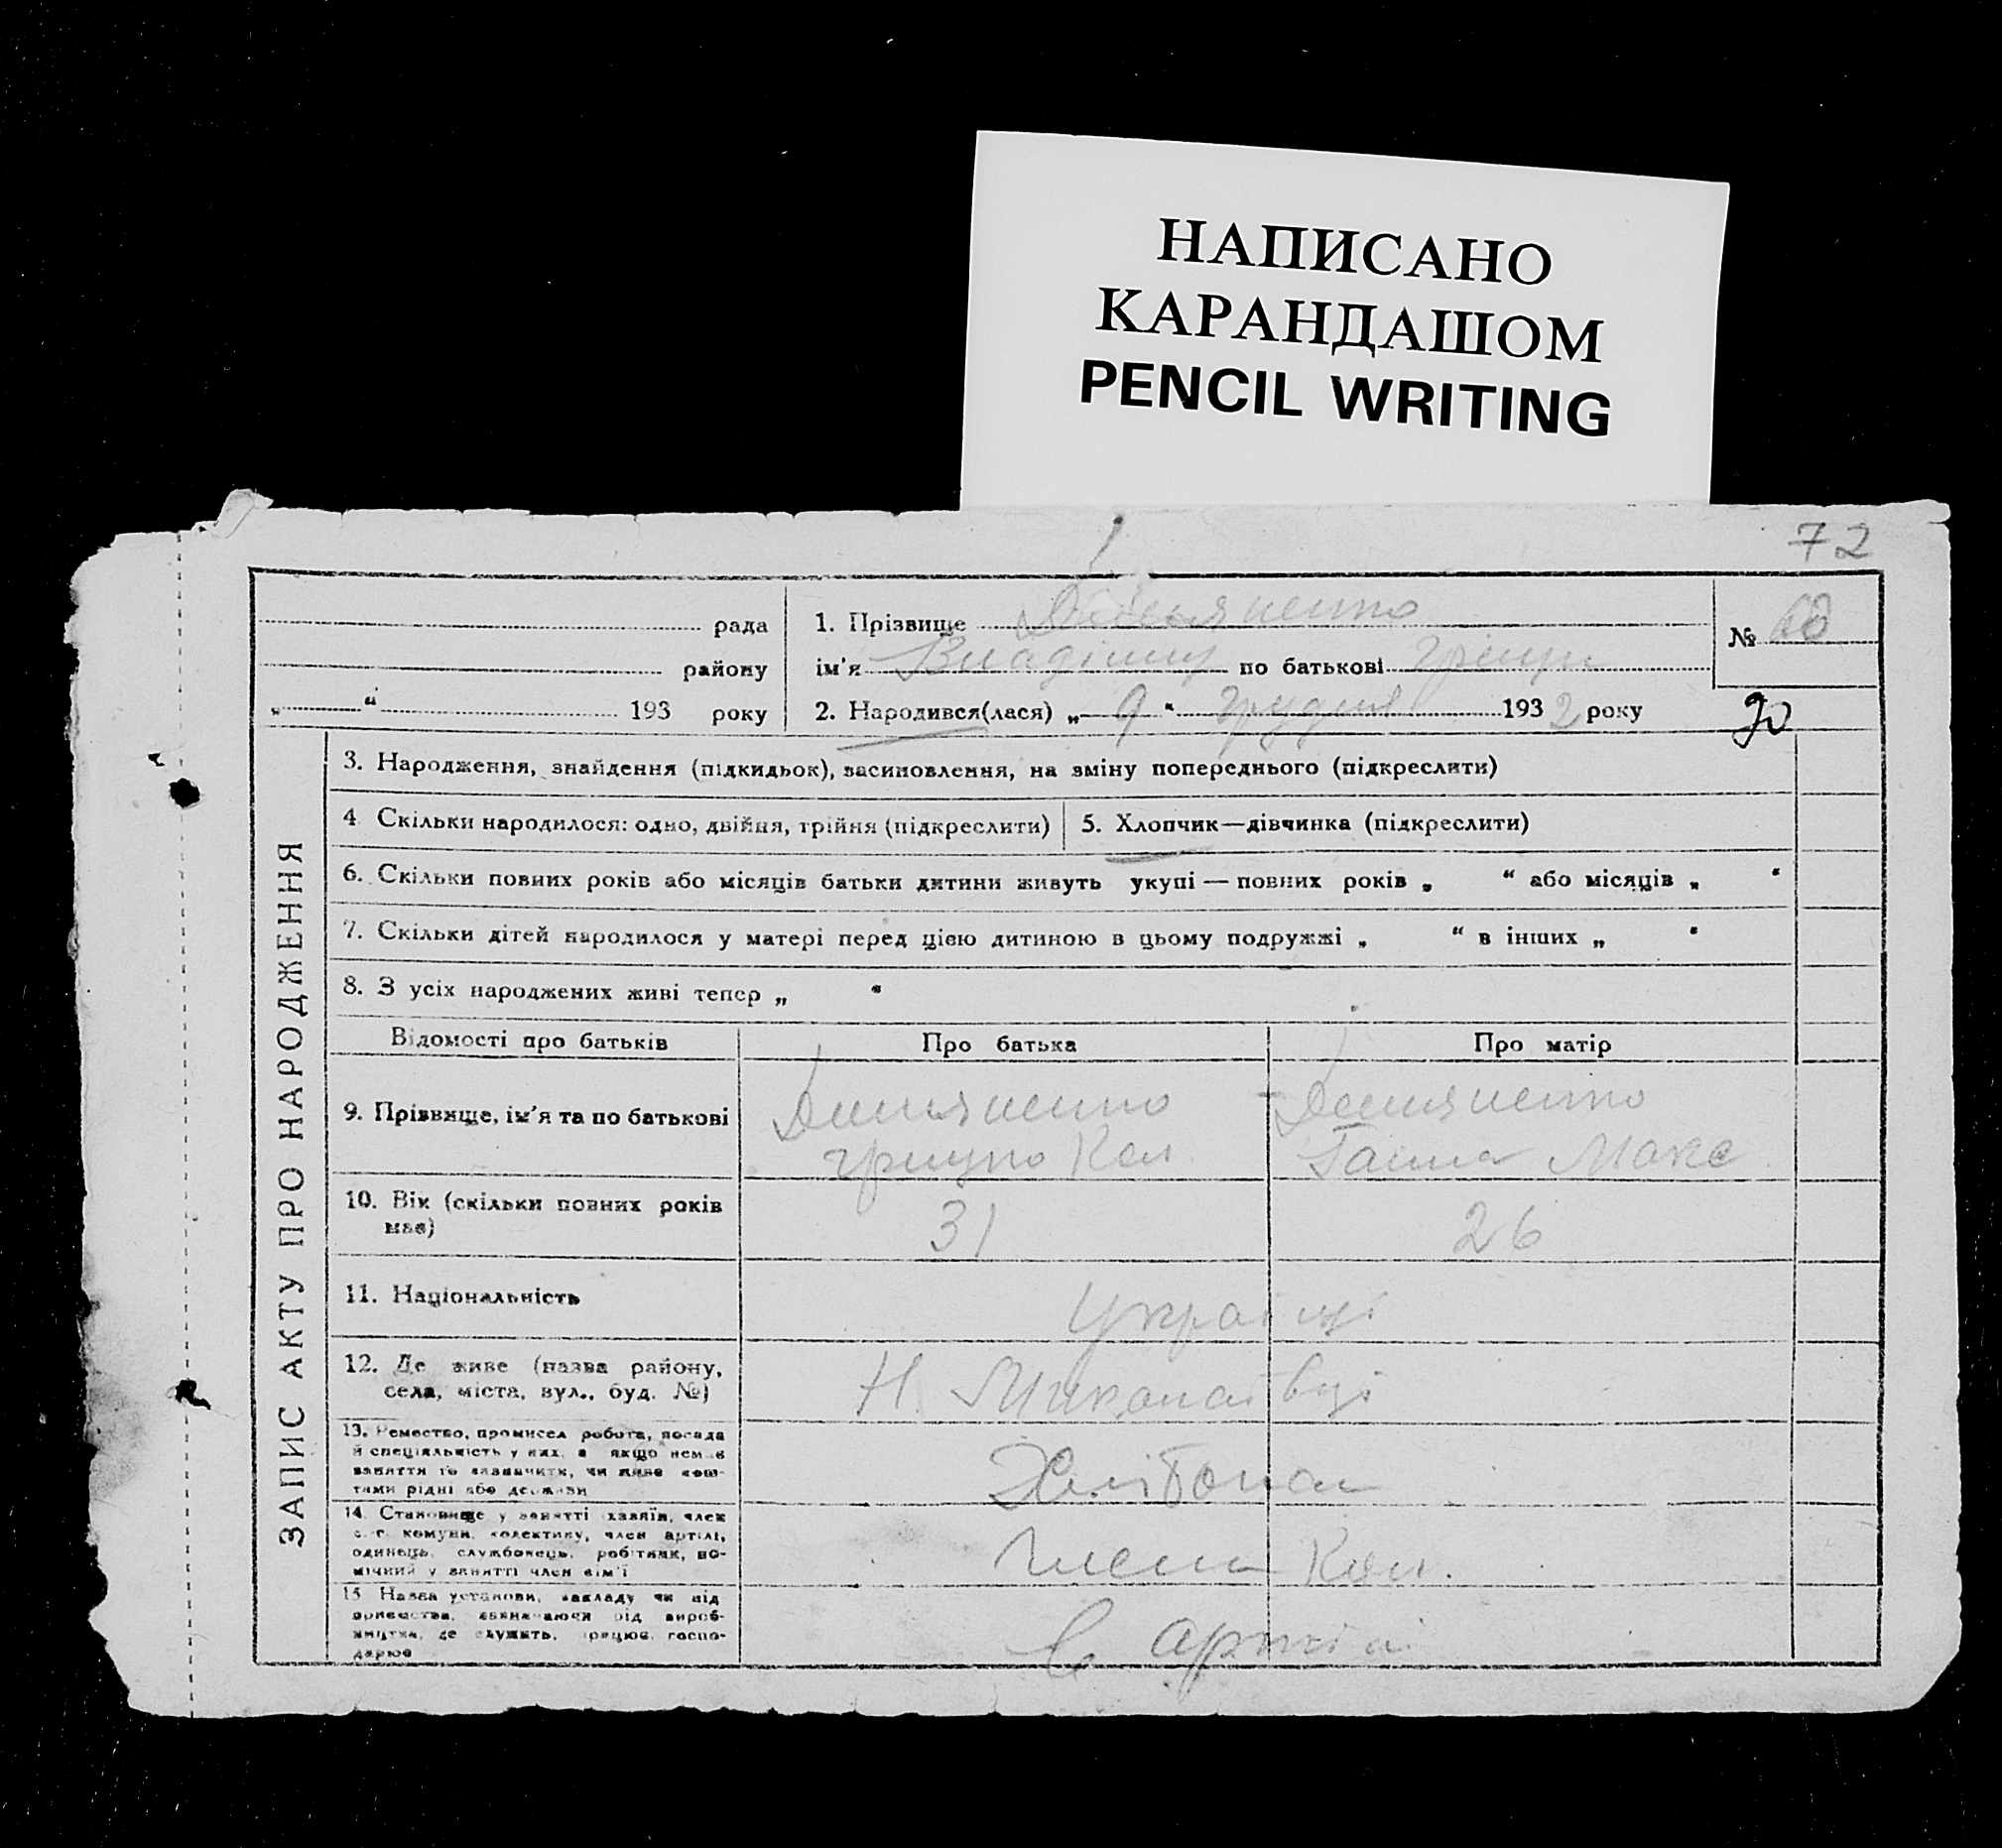 НАПИСАНО
КАРАНДАШОМ
PENCIL WRITING
72
рада
району
„ “ 193 року
1. Прізвище
ім'я Владімир по батькові Грицьк
2. Народився(лася) „ 9 “ грудня 1932 року
№
90
ЗАПИС АКТУ ПРО НАРОДЖЕННЯ
3. Народження, знайдення (підкидьок), засиновлення, на зміну попереднього (підкреслити)
4 Скільки народилося: одно, двійня, трійня (підкреслити)
5. Хлопчик—дівчинка (підкреслити)
6. Скільки повних років або місяців батьки дитини живуть укупі — повних років „ “ або місяців „ “
7. Скільки дітей народилося у матері перед цією дитиною в цьому подружжі „ “ в інших „ “
8. З усіх народжених живі тепер „ “
Відомості про батьків
Про батька
Про матір
9. Прізвище, ім'я та по батькові
Демяненко
Грицько
Демяненко
Ганна Макс
10. Вік (скільки повних років
має)
31
26
11. Національність
Украінці
12. Де живе (назва району,
села, міста, вул., буд. №)
Н. Миколаівці
13. Ремество, промисел робота, посада
й спеціяльність у них, а якщо немає
заняття то зазначити, чи живе кош-
тами рідні або держави
Хлібопаш
14. Становище у занятті хазяїн, член
с.-г. комуни, колективу, член артілі,
одинець, службовець, робітник, по-
мічний у занятті член сім'ї
Член Кол.
15. Назва установи, закладу чи під
приємства, зазначаючи рід вироб-
ництва, де служить, працює, госпо-
дарює
артілі